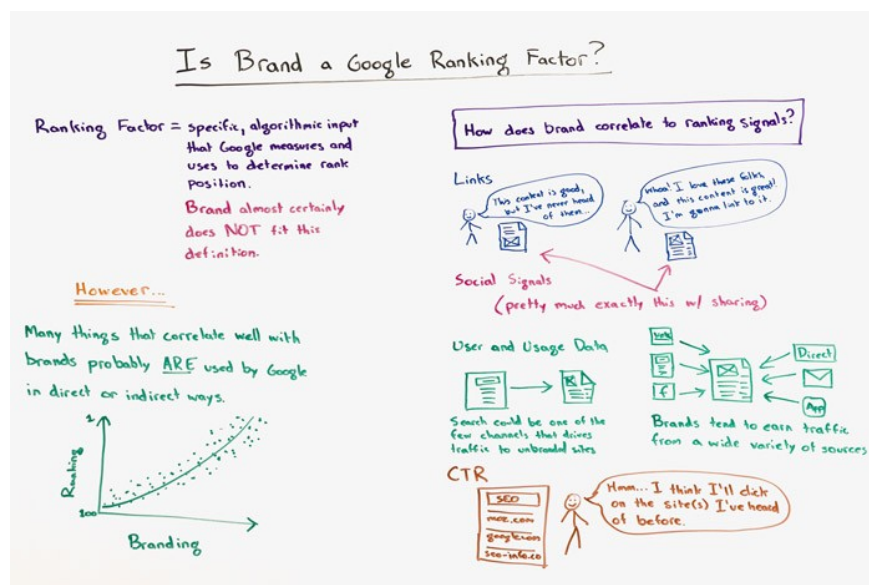 Is Brand a Google Ranking Factor?
Ranking Factor = specific, algorithmic input
that Google measures and
uses to determine rank
position.
Brand almost certainly
does NOT fit this
definition.
However...
Many things that correlate well with
brands probably ARE used by Google
in direct or indirect ways.
1
Ranking
100
Branding
How does brand correlate to ranking signals?
Links
This content is good,
but I've never heard
of them...
Whoa! I love these folks,
and this content is great!
I'm gonna link to it.
Social Signals
(pretty much exactly this w/ sharing)
User and Usage Data
Search could be one of the
few channels that drives
traffic to unbranded sites
f
Direct
App
Brands tend to earn traffic
from a wide variety of sources
CTR
SEO
moz.com
google.com
seo-info.co
Hmm... I think I'll click
on the site(s) I've heard
of before.